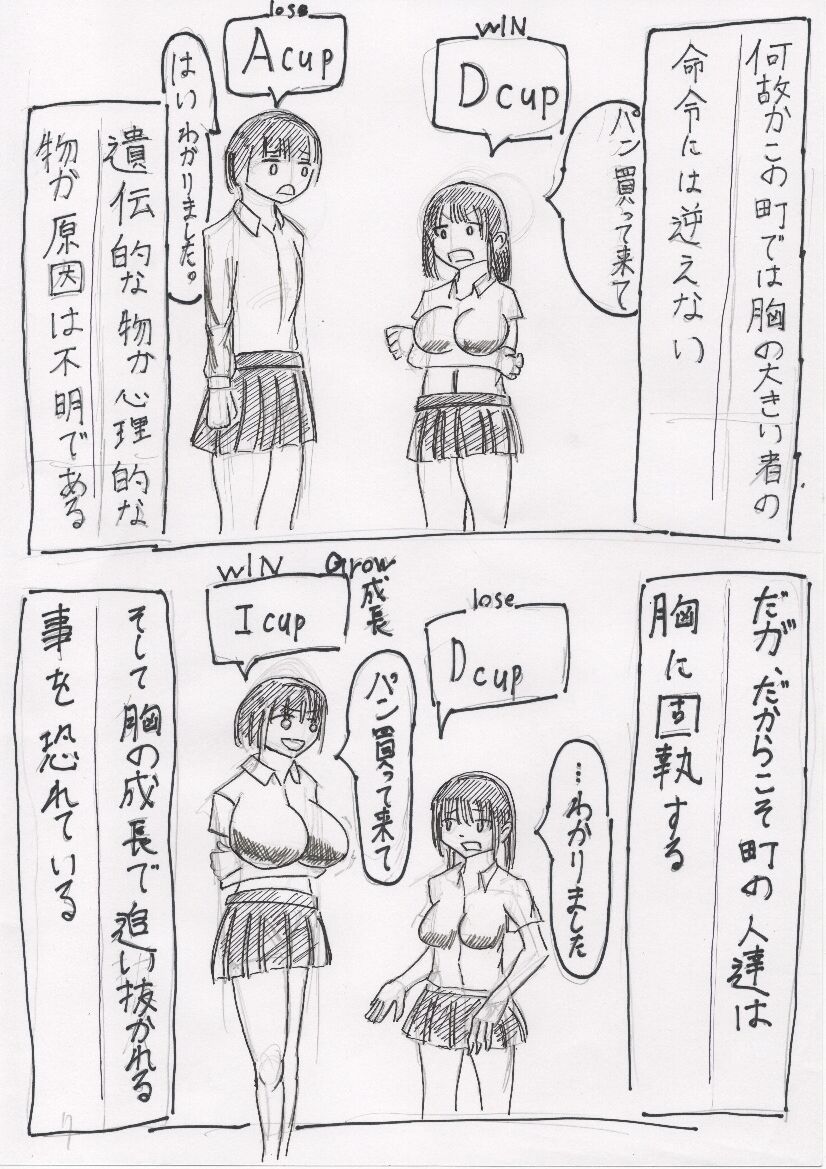 何故かこの町では胸の大きい者の
命令には逆えない
WIN
Dcup
パン買って来て
lose
Acup
はいわかりました。
遺伝的な物か心理的な
物か原因は不明である
だが、だからこそ町の人達は
胸に固執する
lose
Dcup
…わかりました
Grow
成長
WIN
Icup
パン買って来て
そして胸の成長で追い抜かれる
事を恐れている